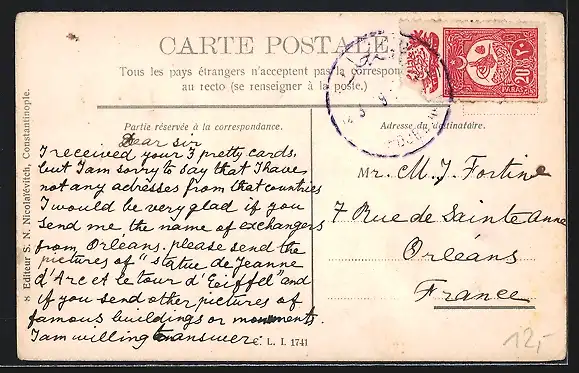 CARTE POSTALE
Tous les pays étrangers n'acceptent pas la correspond
au recto (se renseigner à la poste.)
Partie réservée à la correspondance.
Adresse du destinataire.
Editeur S. N. Nicolaïévitch, Constantinople.
20 PARAS ٢٠
Dear sir
I received your 3 pretty cards,
but I am sorry to say that I have
not any adresses from that countries
I would be very glad if you
send me the name of exchangers
from Orléans. please send the
pictures of "statue de Jeanne
d'Arc et le tour d'Eoiffel" and
if you send other pictures of
famous buildings or monuments.
I am willing to answer.
Mr. M. J. Fortine
7 Rue de Sainte Anne
Orléans
France
C. L. I. 1741
12,-